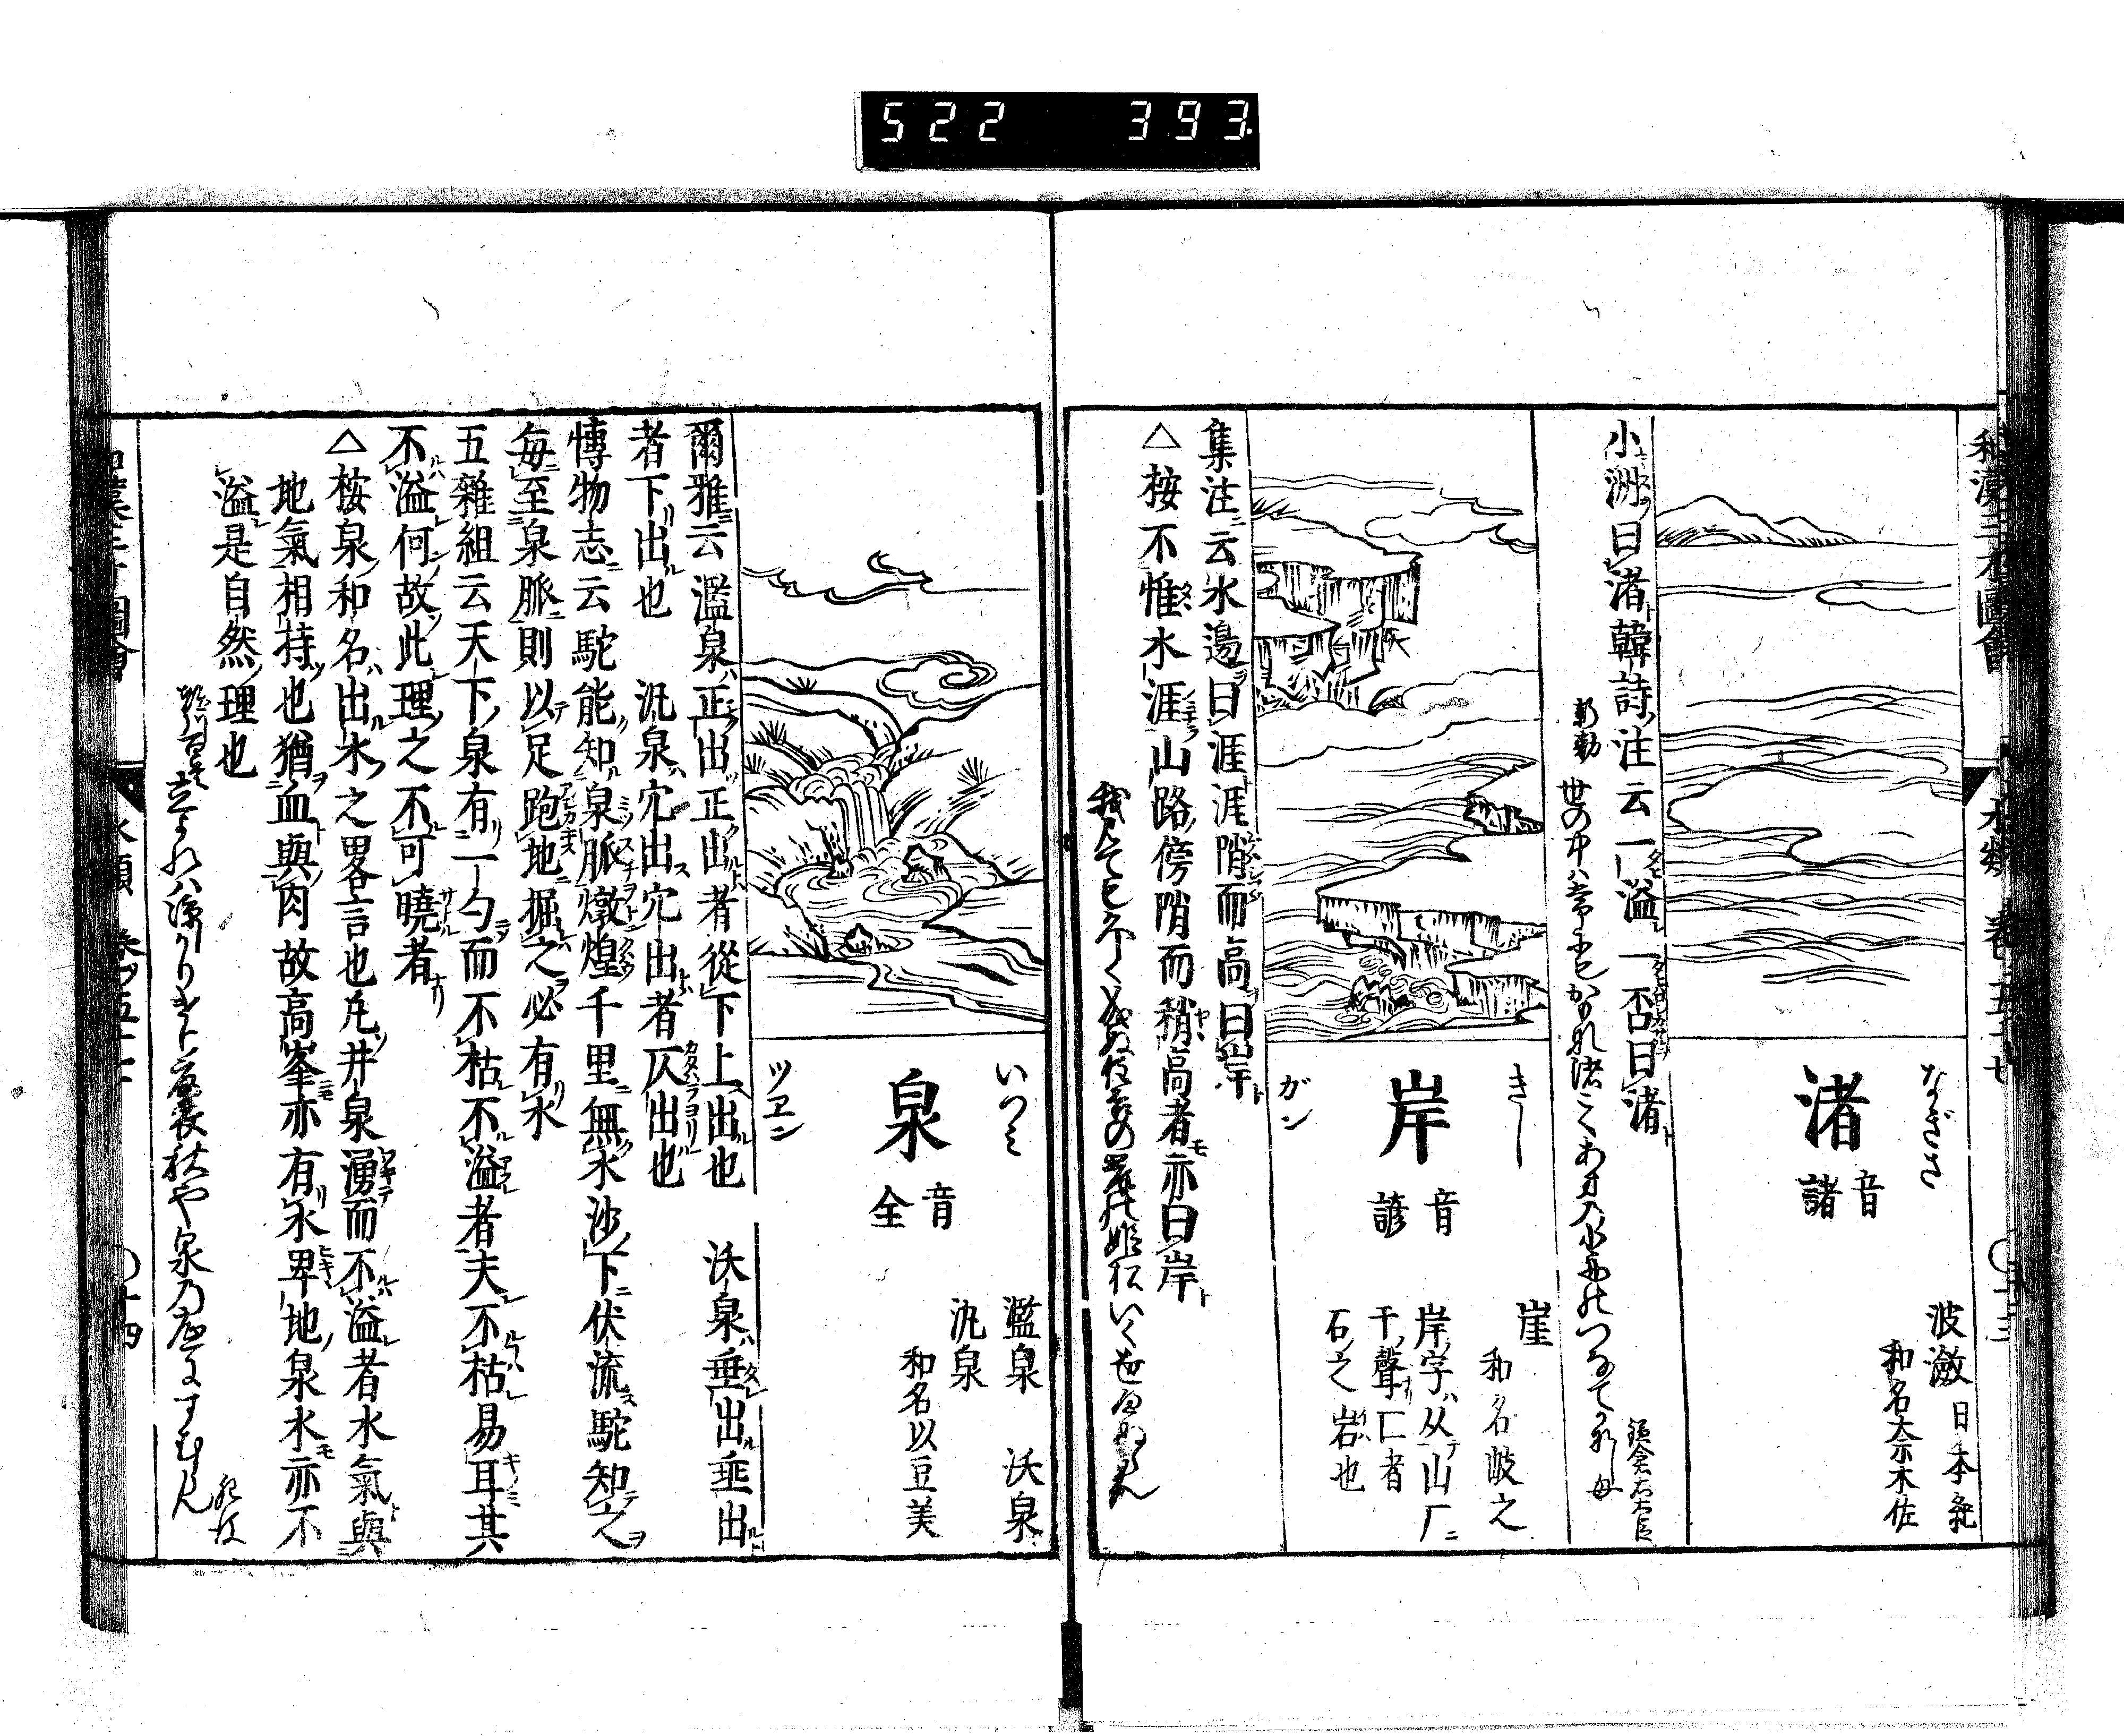 522 393
和漢三才圖會
水類 巻ノ五十七
〇十三
なぎさ
渚
音
諸
波瀲 日本紀
和名奈木佐
小洲曰渚韓詩注云一溢一否曰渚
新勅 世の中は常にもかもな渚こくあまの小舟のつなてかなしも
鎌倉右大臣
きし
岸
音
諺
ガン
崖
和名岐之
岸字从山厂
干聲匸者
石之岩也
集注云水邊曰涯涯陗而高曰岸
△桉不惟水涯山路傍陗而稍高者亦曰岸
我見ても久しく成ぬ住吉の岸の姫松いく世へぬらん
いつミ
泉
音
全
ツヱン
濫泉 沃泉
氿泉
和名以豆美
爾雅云濫泉正出正出者從下上出也 沃泉垂出垂出
者下出也 氿泉穴出穴出者仄出也
博物志云駝能知泉脈燉煌千里無水沙下伏流駝知之
每至泉脈則以足跑地掘之必有水
五雜組云天下泉有一勺而不枯不溢者夫不枯易耳其
不溢何故此理之不可曉者
△桉泉和名出水之畧言也凡井泉湧而不溢者水氣與
地氣相持也猶血與肉故高峯亦有水卑地泉水亦不
溢是自然理也
立よれハ涼しかりけり
秋や泉乃
すむらん
水類 巻ノ五十七
〇十四